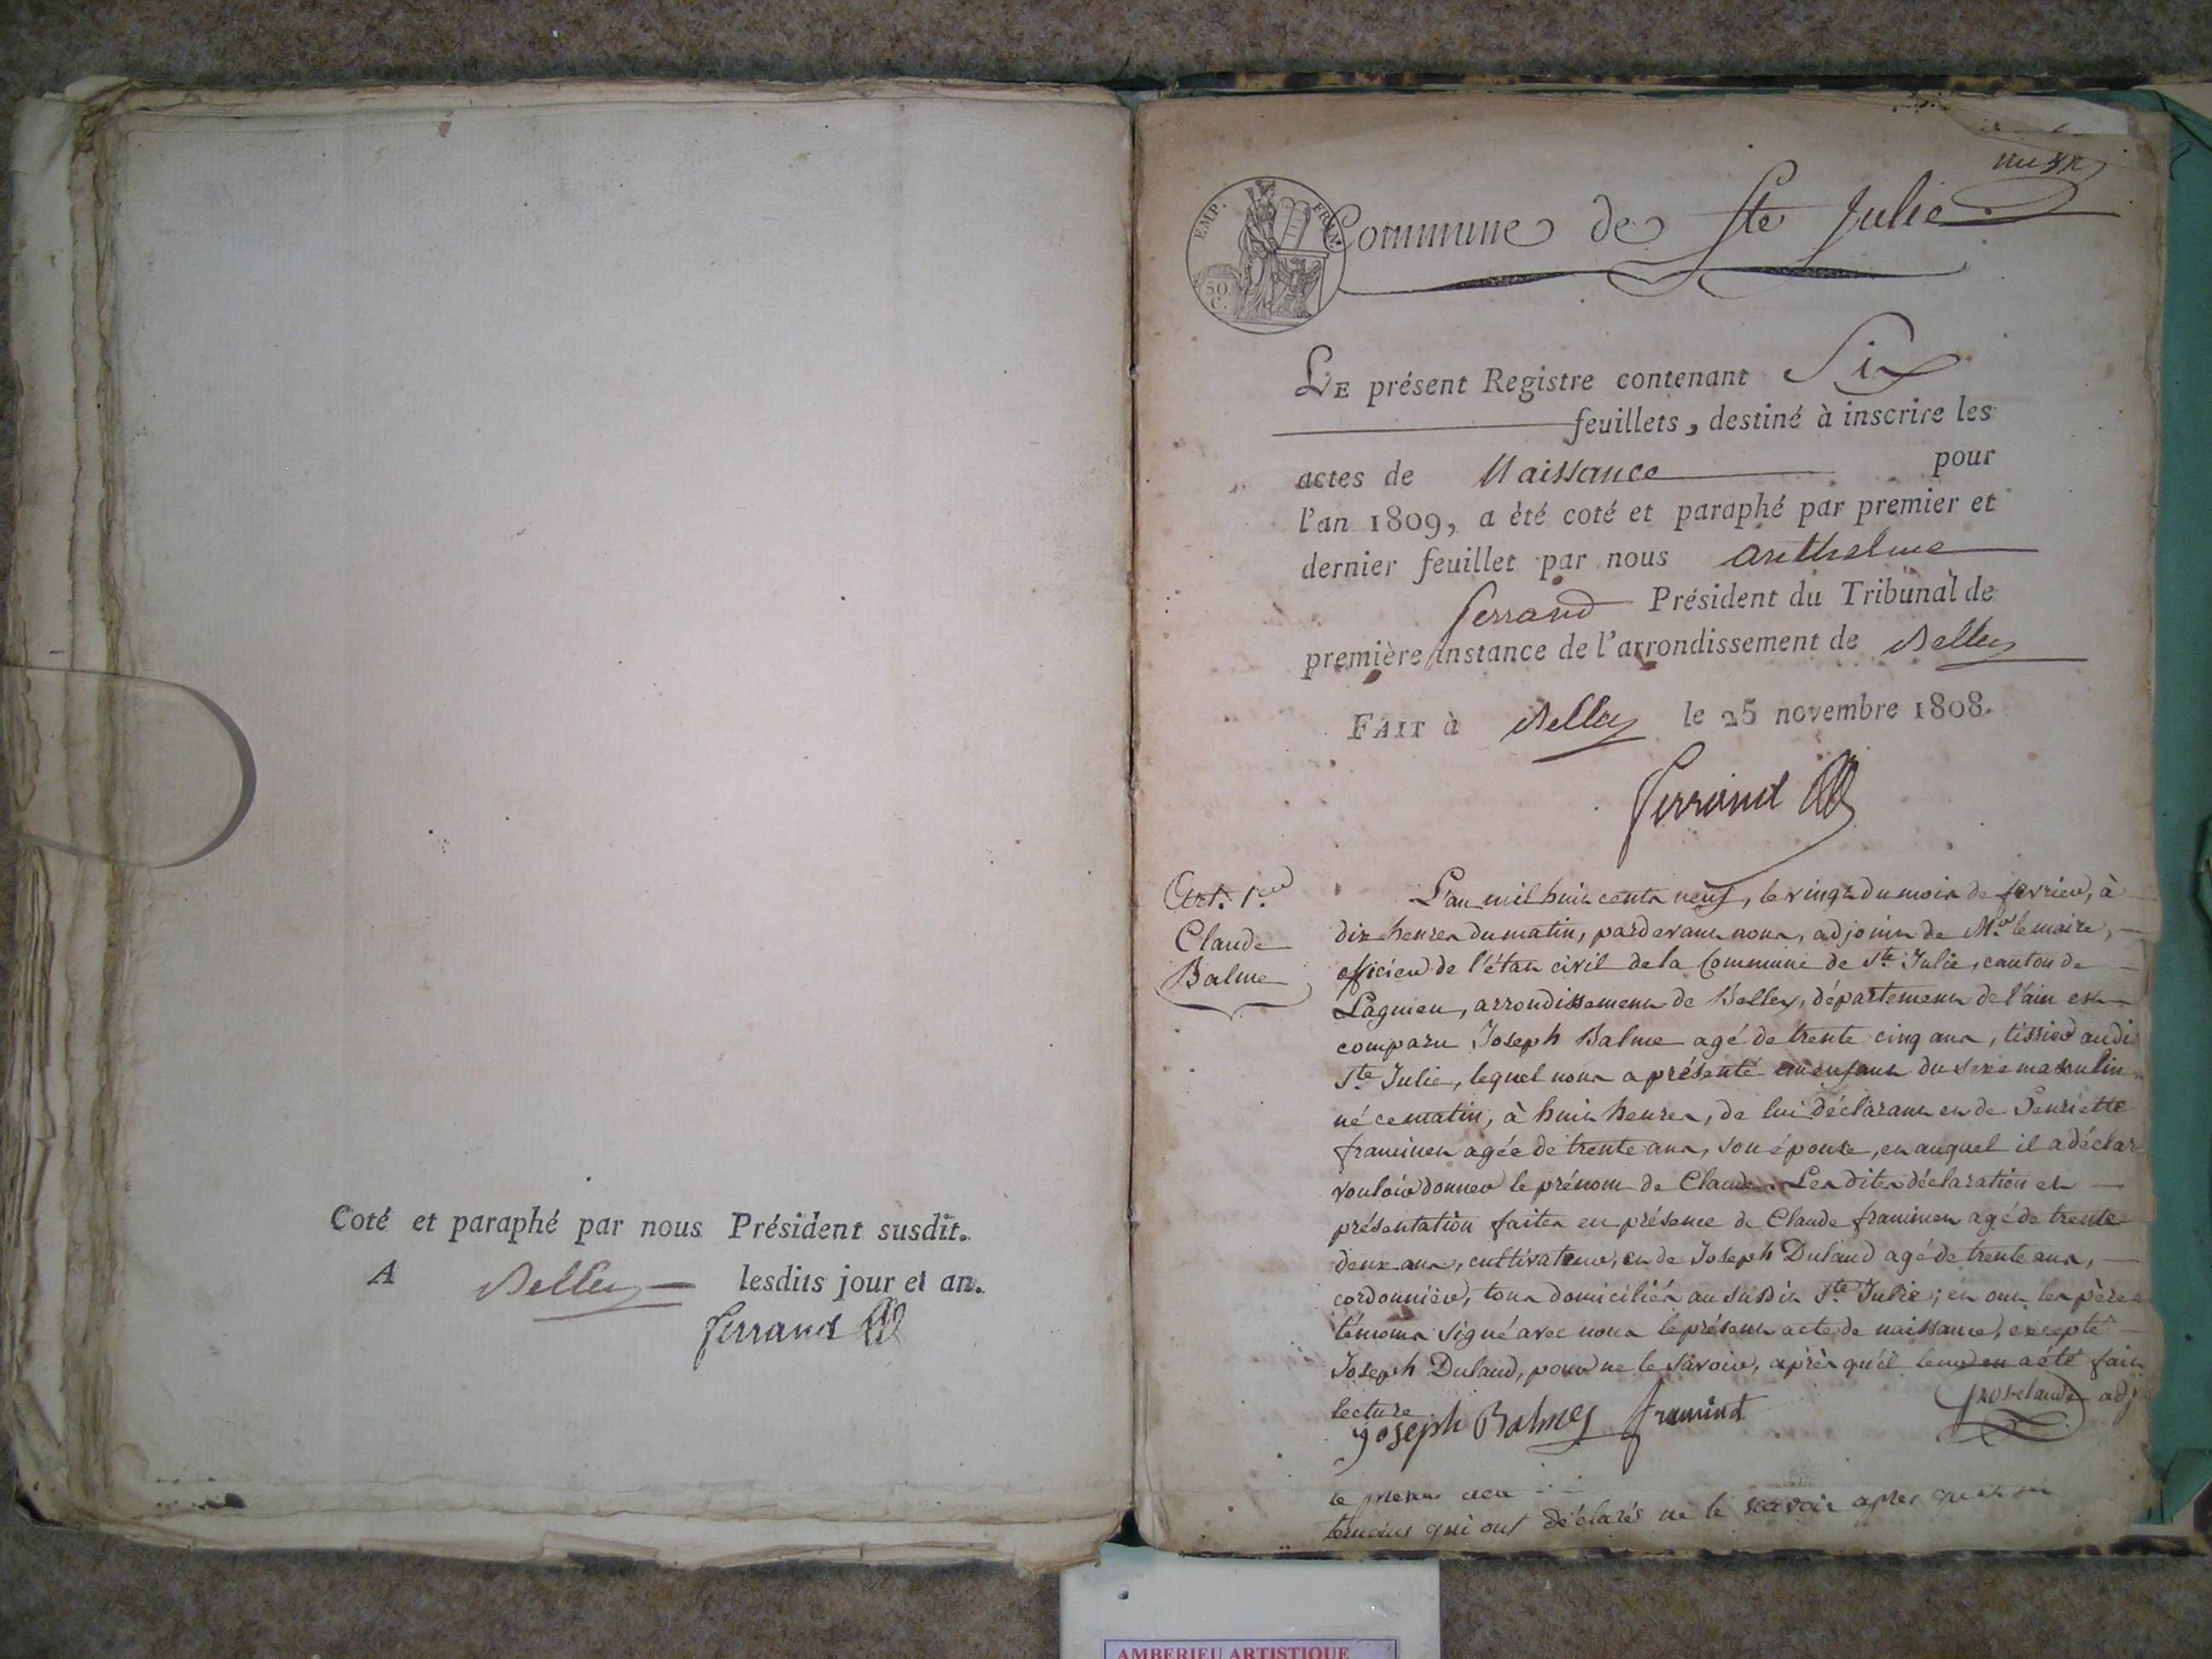 Coté et paraphé par nous Président susdit.
A Belley lesdits jour et an.
Ferrand
EMP. FRAN.
50
C.
Commune de Ste Julie
LE présent Registre contenant Six
feuillets, destiné à inscrire les
actes de Naissance pour
l'an 1809, a été coté et paraphé par premier et
dernier feuillet par nous anthelme
ferrand Président du Tribunal de
première instance de l'arrondissement de Belley
FAIT à Belley le 25 novembre 1808.
Ferrand
Art. 1.er
Claude
Balme
L'an mil huit cents neuf, le vingt du mois de fevrier, à
dix heures du matin, pardevant nous, adjoint de Mr le maire,
officier de l'état civil de la Commune de Ste Julie, canton de
Lagnieu, arrondissement de Belley, département de l'ain est
comparu Joseph Balme agé de trente cinq ans, tissier audit
Ste Julie, lequel nous a présenté un enfant du sexe masculin
né ce matin, à huit heures, de lui déclarant et de Henriette
framinet agée de trente ans, son épouse, et auquel il a déclar
vouloir donner le prénom de Claude. Les dites déclaration et
présentation faites en présence de Claude framinet agé de trente
deux ans, cultivateur, et de Joseph Duland agé de trente ans,
cordonnier, tous domiciliés au susdit Ste Julie; et ont les père et
témoins signé avec nous le présent acte de naissance, excepté
Joseph Duland, pour ne le savoir, après qu'il leur en a été fait
lecture.
Joseph Balmes framinet
adj
le présent acte
temoins qui ont déclarés ne le scavoir apres qu'il
AMBERIEU ARTISTIQUE